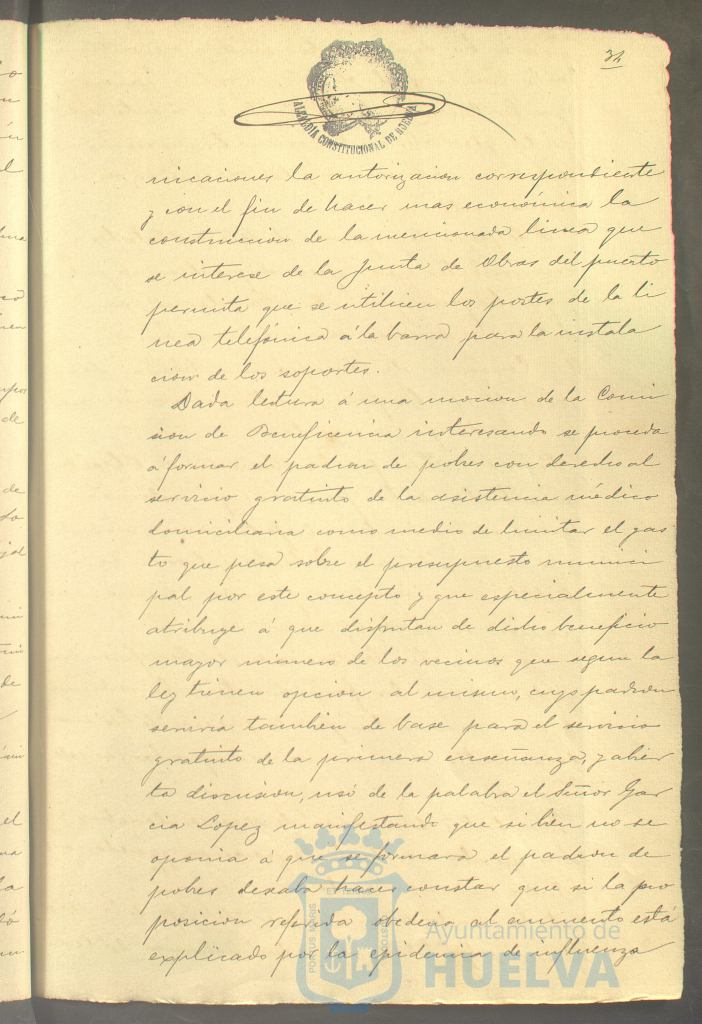 34
ALCALDIA CONSTITUCIONAL DE HUELVA
nicaciones la autorizacion correspondiente
y con el fin de hacer mas económica la
construccion de la mencionada linea que
se interese de la Junta de Obras del puerto
permita que se utilicen los postes de la li
nea telefónica á la barra para la instala
cion de los soportes.
Dada lectura á una mocion de la Comi
sion de Beneficencia interesando se proceda
á formar el padron de pobres con derecho al
servicio gratuito de la asistencia médico
domiciliaria como medio de limitar el gas
to que pesa sobre el presupuesto munici
pal por este concepto y que especialmente
atribuye á que disfrutan de dicho beneficio
mayor número de los vecinos que segun la
ley tienen opcion al mismo, cuyo padron
serviria tambien de base para el servicio
gratuito de la primera enseñanza, y abier
ta discusion, usó de la palabra el Señor Gar
cia Lopez manifestando que si bien no se
oponia á que se formara el padron de
pobres deseaba hacer constar que si la pro
posicion referida obedecia al aumento está
explicado por la epidemia de influenza
Ayuntamiento de
HUELVA
PORTUS MARIS ET TERRAE CUSTODIA